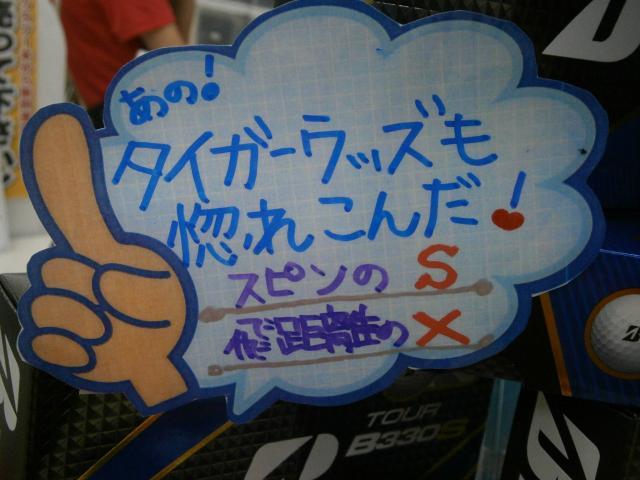 あの!
タイガーウッズも
惚れこんだ!
スピンのS
飛距離のX
TOUR
B330S
B